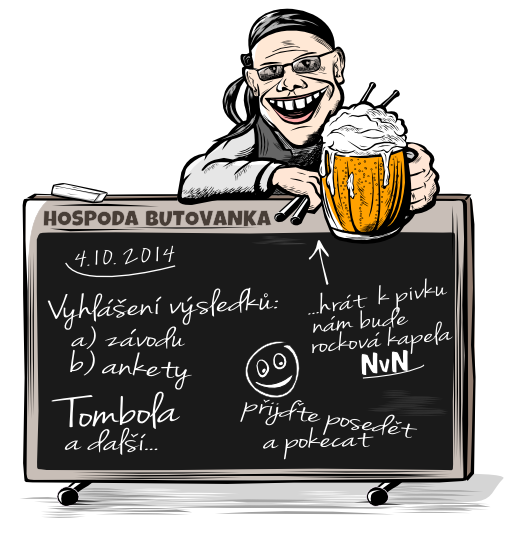 HOSPODA BUTOVANKA
4.10.2014
Vyhlášení výsledků:
a) závodu
b) ankety
Tombola
a další...
...hrát k pivku
nám bude
rocková kapela
NvN
přijďte posedět
a pokecat